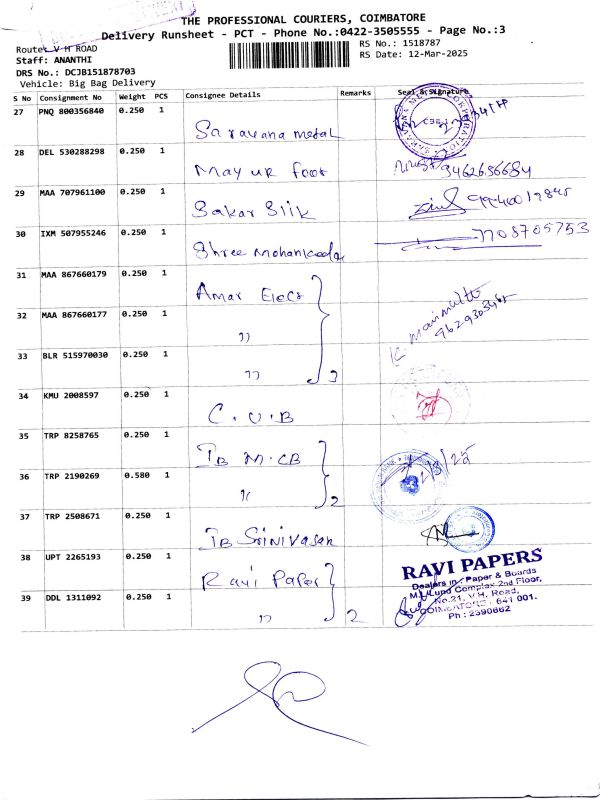 THE PROFESSIONAL COURIERS, COIMBATORE
Delivery Runsheet - PCT - Phone No.:0422-3505555 - Page No.:3
Route: V H ROAD
RS No.: 1518787
Staff: ANANTHI
RS Date: 12-Mar-2025
DRS No.: DCJB151878703
Vehicle: Big Bag Delivery
S No Consignment No Weight PCS Consignee Details Remarks Seal & Signature
27 PNQ 800356840 0.250 1 Saravana metal
28 DEL 530288298 0.250 1 Mayur foot 3462656684
29 MAA 707961100 0.250 1 Sakar Silk
30 IXM 507955246 0.250 1 Shree 7708705753
31 MAA 867660179 0.250 1 Amar Elecs
32 MAA 867660177 0.250 1 "
33 BLR 515970030 0.250 1 " 3
34 KMU 2008597 0.250 1 C.U.B
35 TRP 8258765 0.250 1 IB M.CB
36 TRP 2190269 0.580 1 " 2
37 TRP 2508671 0.250 1 IB Srinivasan
38 UPT 2265193 0.250 1 Ravi Paper
39 DDL 1311092 0.250 1 " 2
RAVI PAPERS
Dealers in: Paper & Boards
M.L. Lund Complex 2nd Floor,
No.21, V.H. Road,
COIMBATORE - 641 001.
Ph : 2390662